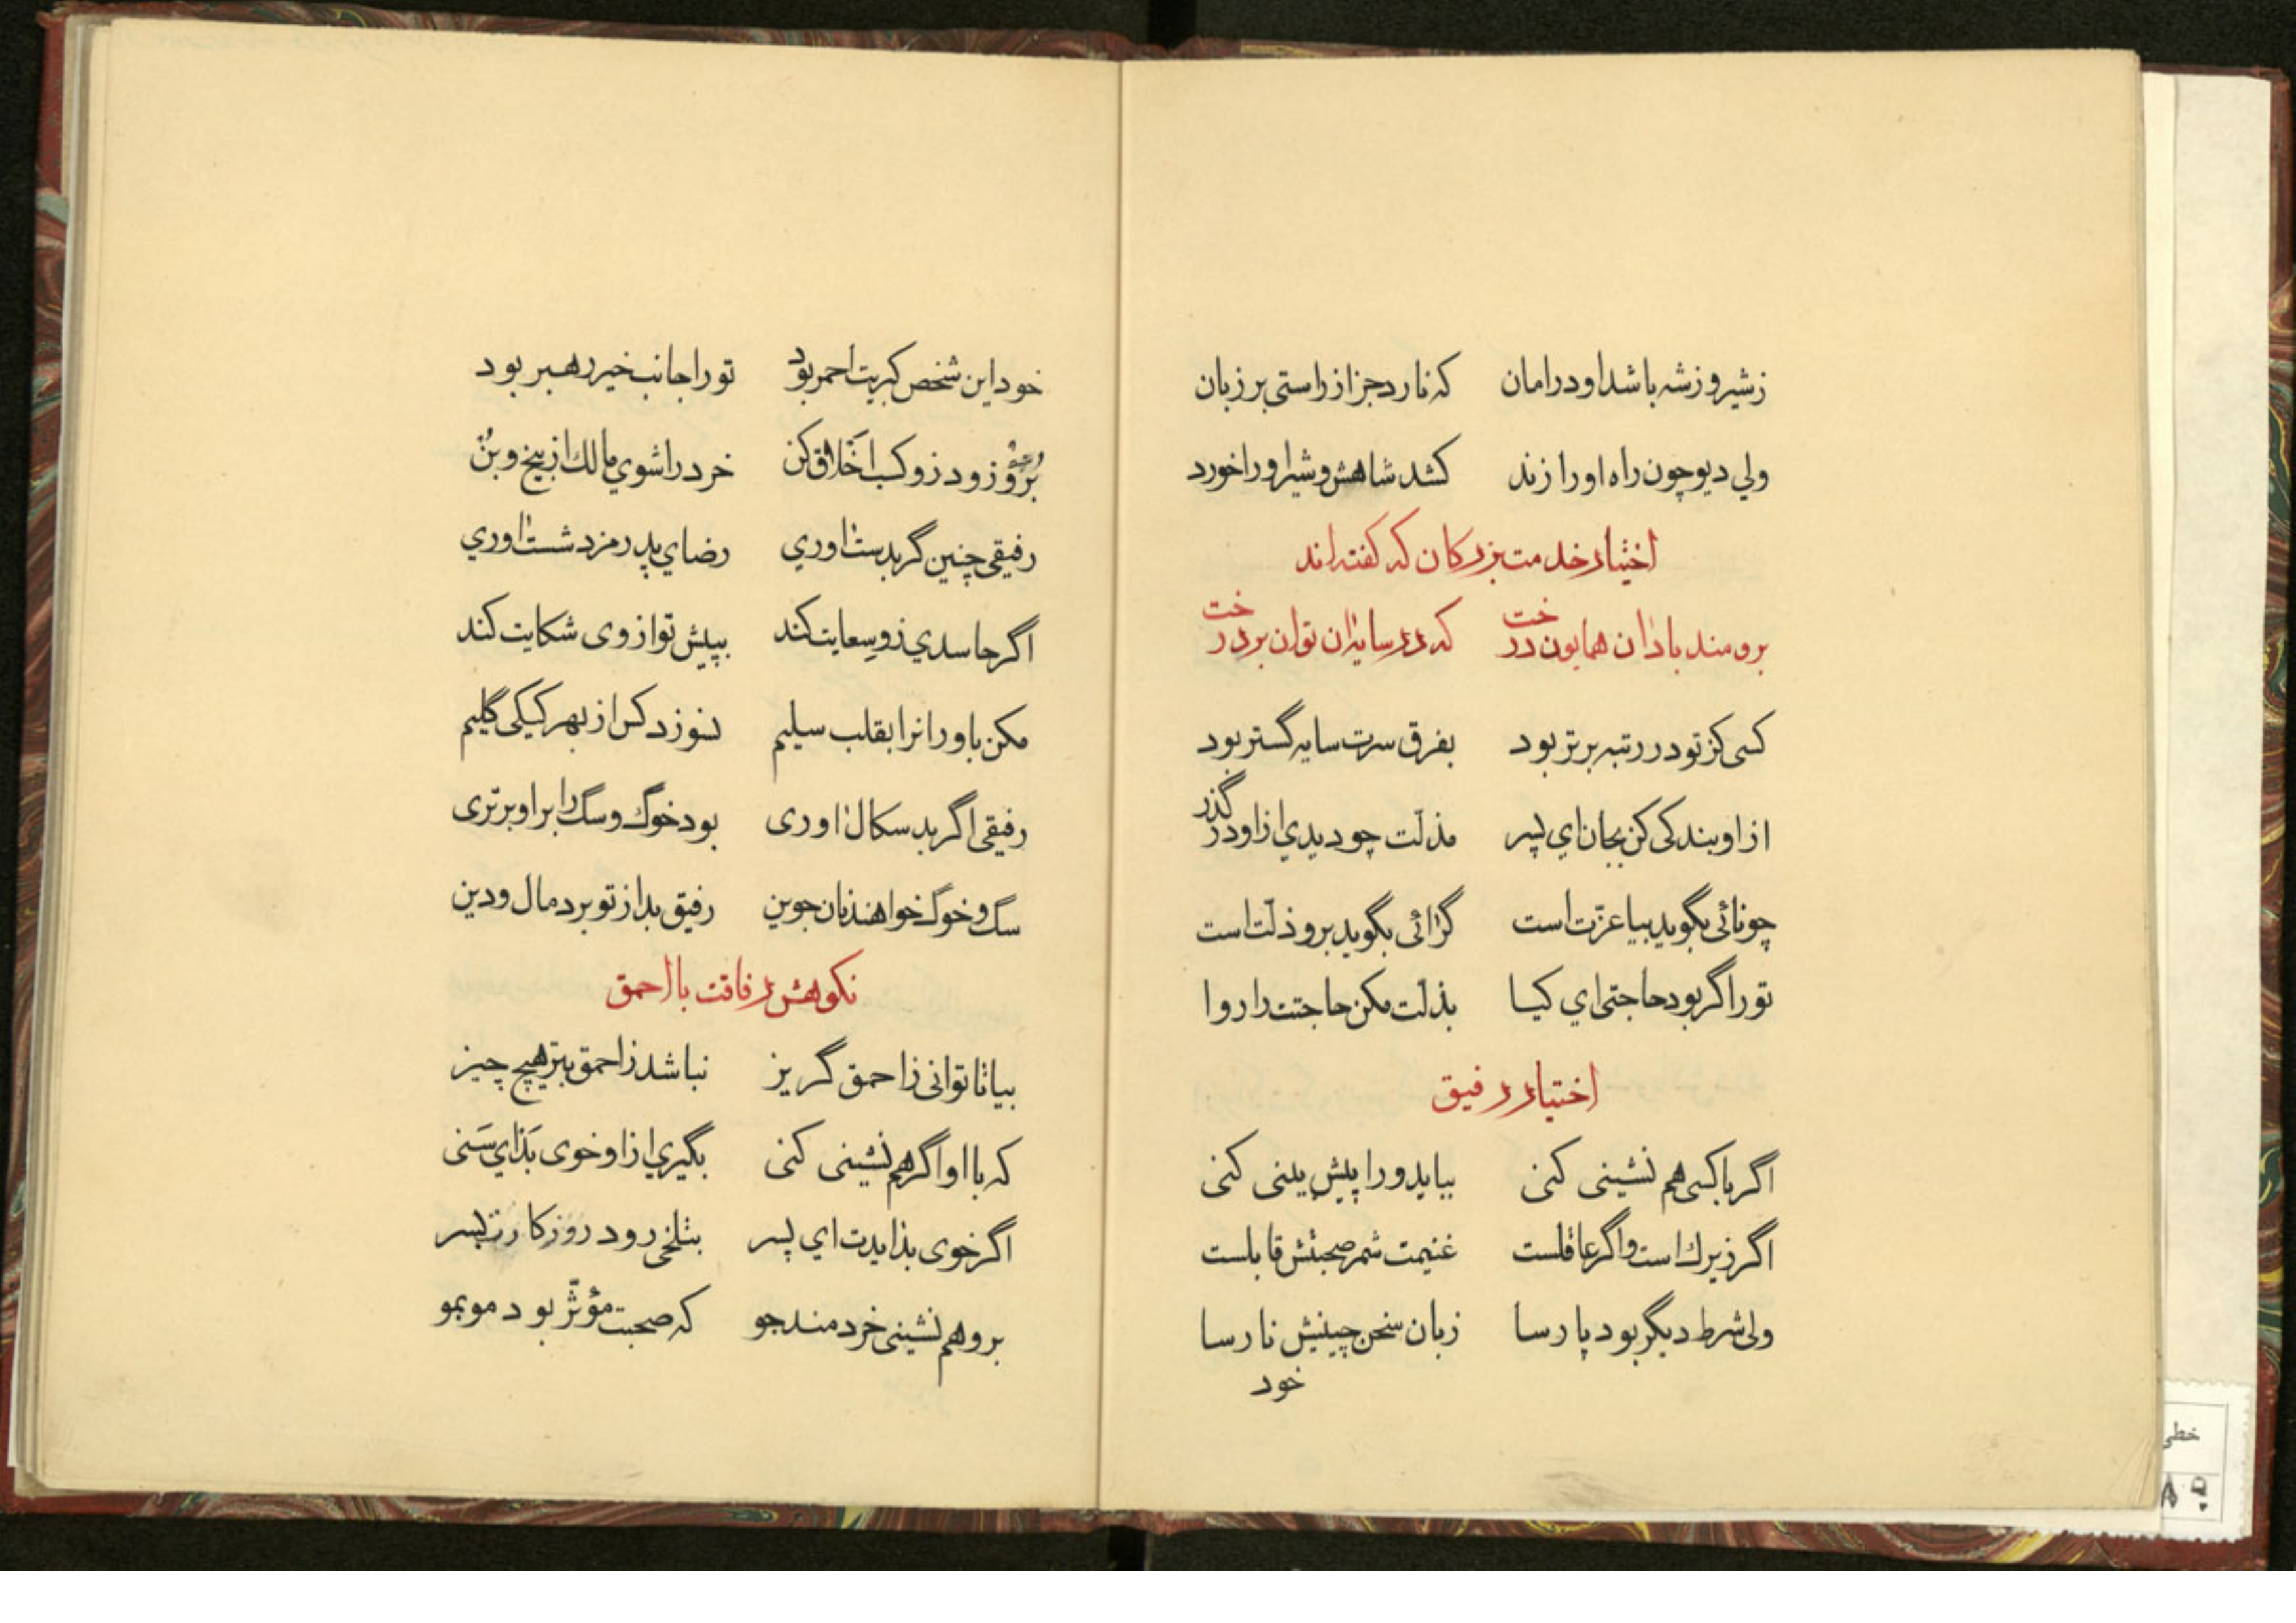 زشیر و زشه باشد او در امان که نارد جز از راستی بر زبان
ولي ديو چون راه او را زند کشد شاهش و شیر او را خورد
اختیار خدمت بزرکان که کفته اند
برومند باد ان همایون درخت که در سایه ان توان برد رخت
کسی کز تو در رتبه برتر بود بفرق سرت سایه گستر بود
از او بندکی کن بجان اي پسر مذلّت چو دیدي از او در گذر
چو نائی بگوید بیا عزّت است گرائی بگوید برو ذلّت است
تو را گر بود حاجتی اي کیا بذلّت مکن حاجتت را روا
اختیار رفیق
اگر با کسی هم نشینی کنی بباید و را پیش بینی کنی
اگر زیرك است و اگر عاقلست غنیمت شمر صحبتش قابلست
ولی شرط دیگر بود پارسا زبان سخن چینیش نارسا
خود
خود این شخص کبریت احمر بود تو را جانب خیر رهبر بود
برو زود زو کسب اخَلاق کن خرد را شوي مالك از بیخ و بُن
رفیقی چنین گر بدست اوري رضاي پدر مزد شست اوري
اگر حاسدي زو سِعایت کند بپیش تو از وی شکایت کند
مکن باور انرا بقلب سلیم نسوزد کس از بهر کیکی گلیم
رفیقی اگر بد سکال اوری بود خوگ و سگ را بر او برتری
سگ و خوگ خواهند نان جوین رفیق بد از تو برد مال و دین
نکوهش رفاقت با احمق
بیا تا توانی ز احمق گریز نباشد ز احمق بتر هیچ چیز
که با او اگر هم نشینی کنی بگیري از او خوی بَد اي سَنی
اگر خوی بد ایدت اي پسر بتلخی رود روزکارت بسر
برو هم نشینی خردمند جو که صحبت مؤثّر بود مو بمو
خطی